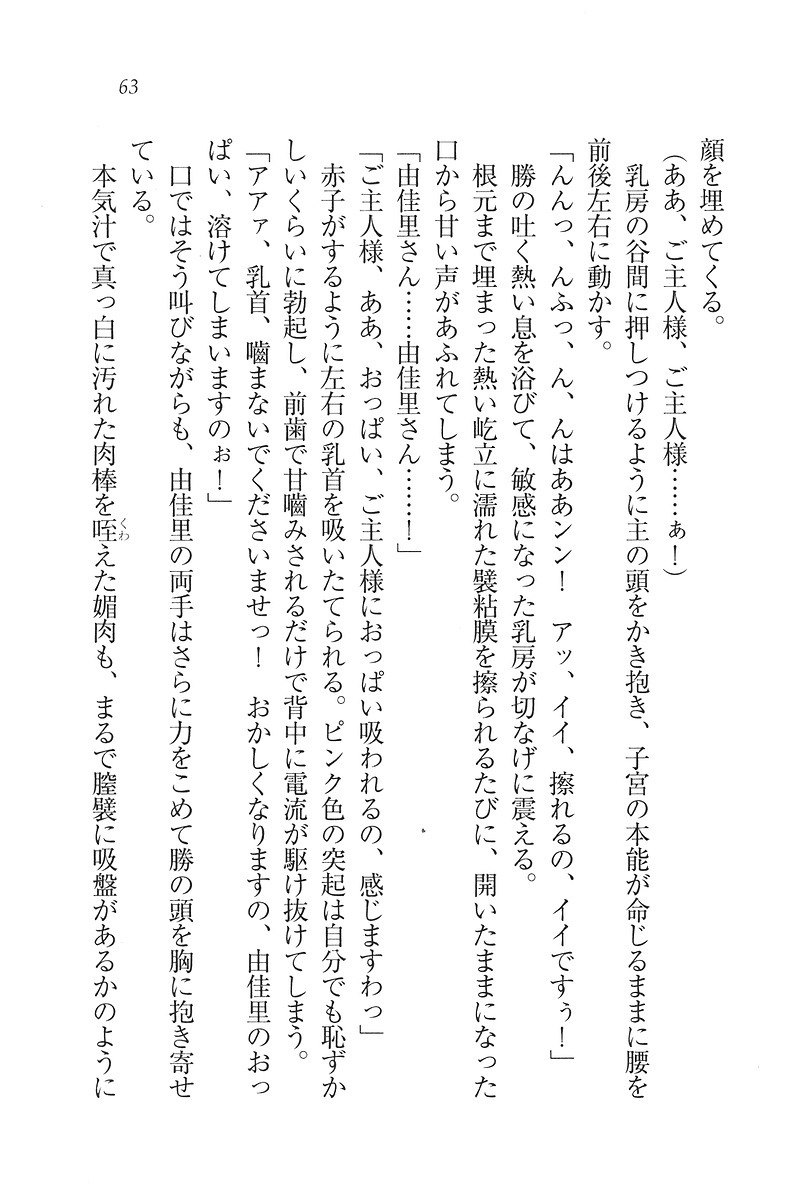 63
顔を埋めてくる。
（ああ、ご主人様、ご主人様……ぁ！）
乳房の谷間に押しつけるように主の頭をかき抱き、子宮の本能が命じるままに腰を
前後左右に動かす。
「んんっ、んふっ、ん、んはああンン！　アッ、イイ、擦れるの、イイですぅ！」
勝の吐く熱い息を浴びて、敏感になった乳房が切なげに震える。
根元まで埋まった熱い屹立に濡れた襞粘膜を擦られるたびに、開いたままになった
口から甘い声があふれてしまう。
「由佳里さん……由佳里さん……！」
「ご主人様、ああ、おっぱい、ご主人様におっぱい吸われるの、感じますわっ」
赤子がするように左右の乳首を吸いたてられる。ピンク色の突起は自分でも恥ずか
しいくらいに勃起し、前歯で甘嚙みされるだけで背中に電流が駆け抜けてしまう。
「アアァ、乳首、嚙まないでくださいませっ！　おかしくなりますの、由佳里のおっ
ぱい、溶けてしまいますのぉ！」
口ではそう叫びながらも、由佳里の両手はさらに力をこめて勝の頭を胸に抱き寄せ
ている。
本気汁で真っ白に汚れた肉棒を咥くわえた媚肉も、まるで膣襞に吸盤があるかのように